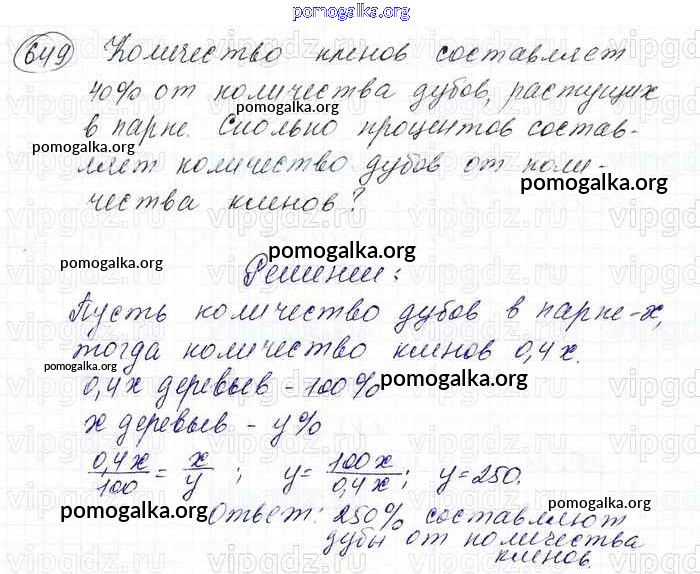 pomogalka.org
649 Количество кленов составляет
40% от количества дубов, растущих
pomogalka.org
в парке. Сколько процентов состав-
pomogalka.org
ляет количество дубов от коли-
pomogalka.org
чества кленов?
pomogalka.org
pomogalka.org
Решение:
Пусть количество дубов в парке - x,
тогда количество кленов 0,4x.
pomogalka.org
0,4x деревьев - 100%
pomogalka.org
x деревьев - y%
0,4x/100 = x/y ; y = 100x/0,4x ; y = 250.
pomogalka.org
pomogalka.org
Ответ: 250% составляют
дубы от количества
pomogalka.org
кленов.